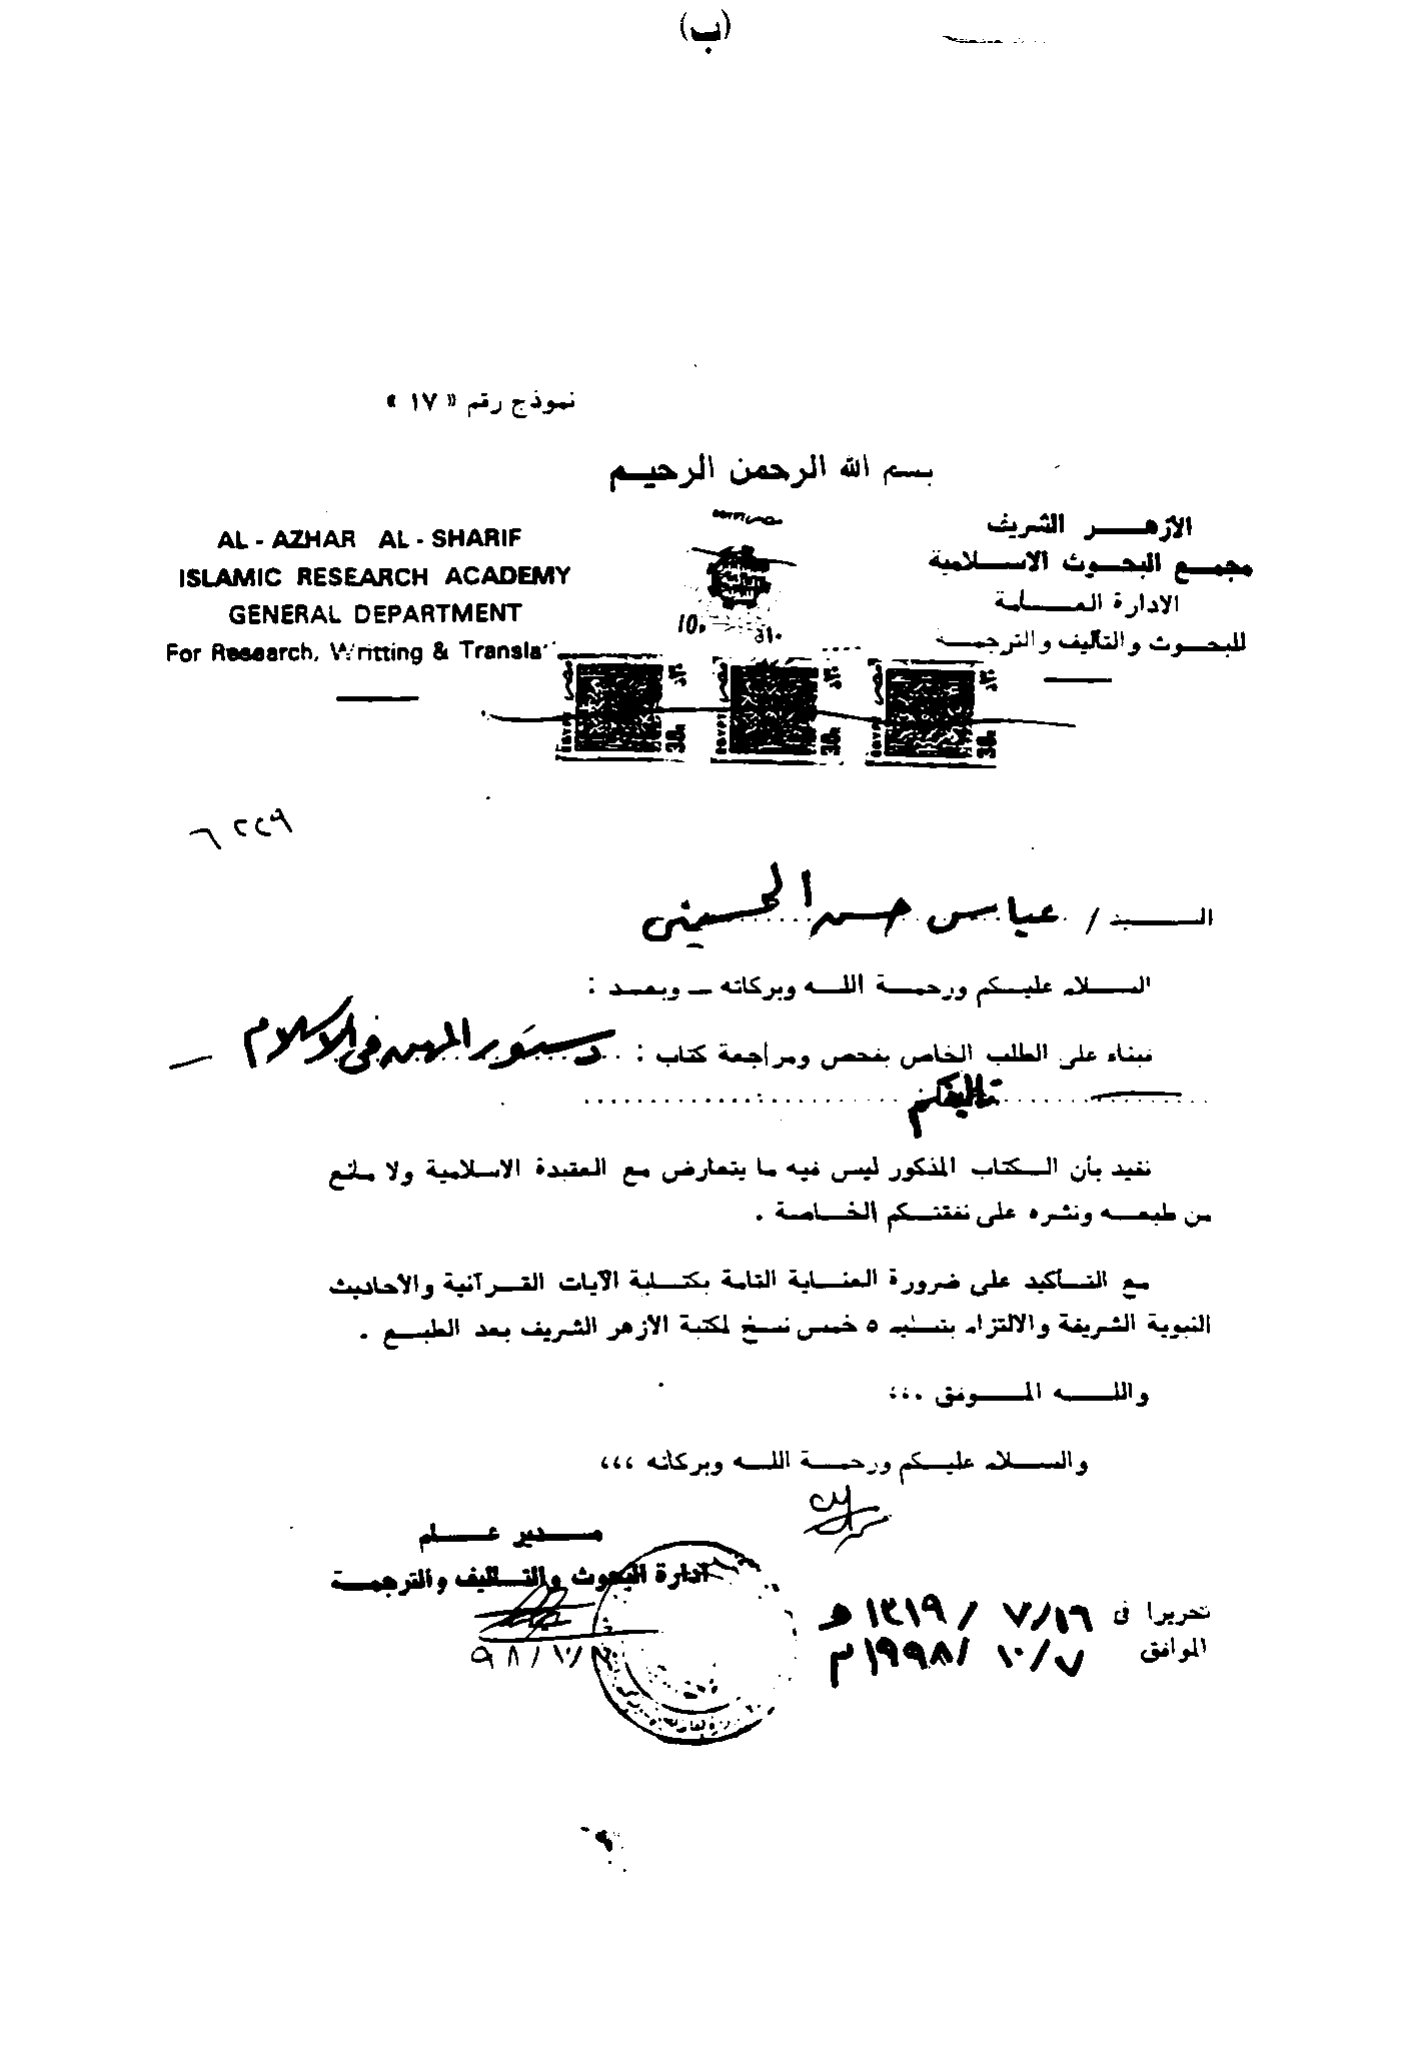 (ب)
نموذج رقم « ١٧ »
بسم الله الرحمن الرحيم
الأزهر الشريف
مجمع البحوث الاسلامية
الادارة العامة
للبحوث والتأليف والترجمة
AL - AZHAR AL - SHARIF
ISLAMIC RESEARCH ACADEMY
GENERAL DEPARTMENT
For Research, Writting & Transla
السيد / عباس حسن الحسيني
السلام عليكم ورحمة الله وبركاته – وبعد :
فبناء على الطلب الخاص بفحص ومراجعة كتاب : دستور المهن في الاسلام
تأليفكم
نفيد بأن الكتاب المذكور ليس فيه ما يتعارض مع العقيدة الاسلامية ولا مانع
من طبعه ونشره على نفقتكم الخاصة .
مع التأكيد على ضرورة العناية التامة بكتابة الآيات القرآنية والأحاديث
النبوية الشريفة والالتزام بتسليم ٥ خمس نسخ لمكتبة الأزهر الشريف بعد الطبع .
والله الموفق ،،،
والسلام عليكم ورحمة الله وبركاته ،،،
مدير عام
ادارة البحوث والتأليف والترجمة
تحريرا في ١٦/ ٧ / ١٤١٩ هـ
الموافق ٧/ ١٠ /١٩٩٨ م